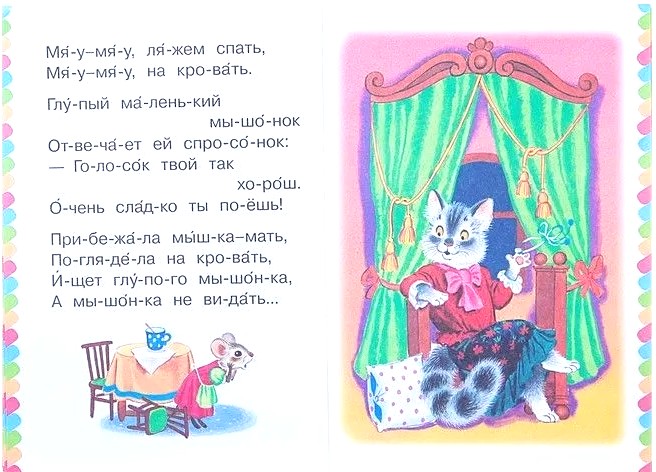 Мя́-у–мя́-у, ля́-жем спать,
Мя́-у–мя́-у, на кро-ва́ть.
Глу́-пый ма́-лень-кий
мы-шо́-нок
От-ве-ча́-ет ей спро-со́-нок:
— Го-ло-со́к твой так
хо-ро́ш.
О́-чень сла́д-ко ты по-ёшь!
При-бе-жа́-ла мы́ш-ка–мать,
По-гля-де́-ла на кро-ва́ть,
И́-щет глу́-по-го мы-шо́н-ка,
А мы-шо́н-ка не ви-да́ть...